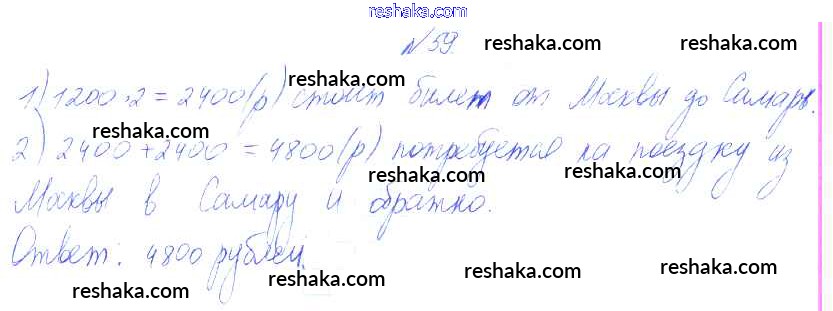 reshaka.com
№59. reshaka.com
reshaka.com reshaka.com
1) 1200·2=2400(р) стоит билет от Москвы до Самары.
reshaka.com reshaka.com
2) 2400+2400=4800(р) потребуется на поездку из
reshaka.com reshaka.com
Москвы в Самару и обратно.
reshaka.com reshaka.com
Ответ: 4800 рублей.
reshaka.com reshaka.com reshaka.com
reshaka.com